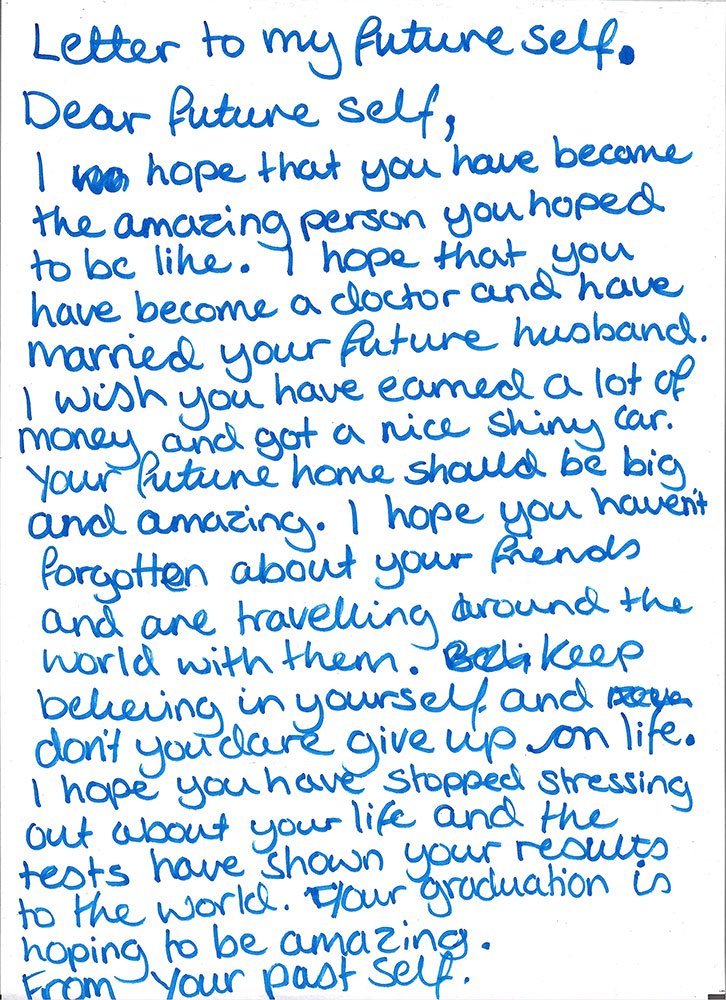 Letter to my future self.
Dear future self,
I hope that you have become
the amazing person you hoped
to be like. I hope that you
have become a doctor and have
married your future husband.
I wish you have earned a lot of
money and got a nice shiny car.
Your future home should be big
and amazing. I hope you haven't
forgotten about your friends
and are travelling around the
world with them. Keep
believing in yourself and
don't you dare give up on life.
I hope you have stopped stressing
out about your life and the
tests have shown your results
to the world. Your graduation is
hoping to be amazing.
From your past self.